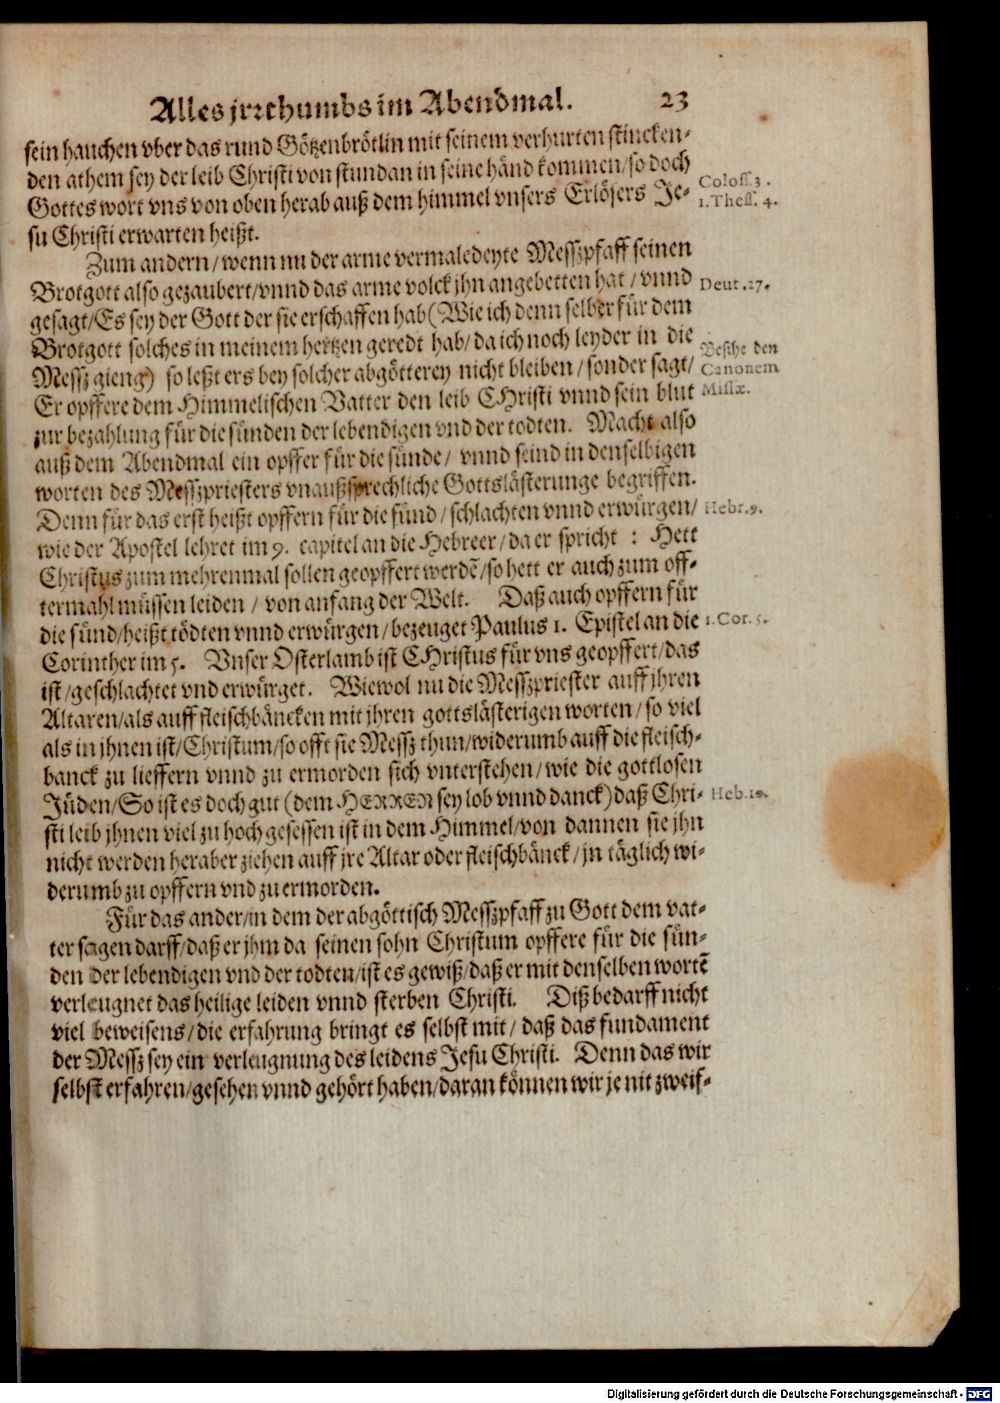 Alles jrrthumbs im Abendmal. 23
sein hauchen vber das rund Götzenbrötlin mit seinem verhurten stincken-
den athem sey der leib Christi von stundan in seine händ kommen/so doch
Gottes wort vns von oben herab auß dem himmel vnsers Erlösers Je-
su Christi erwarten heißt.
Coloss. 3.
1. Thess. 4.
Zum andern/wenn nu der arme vermaledeyte Messzpfaff seinen
Brotgott also gezaubert/vnnd das arme volck jhn angebetten hat/vnnd
gesagt/Es sey der Gott der sie erschaffen hab (Wie ich denn selber für dem
Brotgott solches in meinem hertzen geredt hab/da ich noch leyder in die
Messz gieng) so leßt ers bey solcher abgötterey nicht bleiben/sonder sagt/
Er opffere dem Himmelischen Vatter den leib CHristi vnnd sein blut
zur bezahlung für die sünden der lebendigen vnd der todten. Macht also
auß dem Abendmal ein opffer für die sünde/ vnnd seind in denselbigen
worten des Messzpriesters vnaußsprechliche Gottslästerunge begriffen.
Denn für das erst heißt opffern für die sünd/schlachten vnnd erwürgen/
wie der Apostel lehret im 9. capitel an die Hebreer/da er spricht: Hett
Christus zum mehrenmal sollen geopffert werdē/so hett er auch zum off-
termahl müssen leiden/ von anfang der Welt. Daß auch opffern für
die sünd/heißt tödten vnnd erwürgen/bezeuget Paulus 1. Epistel an die
Corinther im 5. Vnser Osterlamb ist CHristus für vns geopffert/das
ist/geschlachtet vnd erwürget. Wiewol nu die Messzpriester auff jhren
Altaren/als auff fleischbäncken mit jhren gottslästerigen worten/so viel
als in jhnen ist/Christum/so offt sie Messz thun/widerumb auff die fleisch-
banck zu lieffern vnnd zu ermorden sich vnterstehen/wie die gottlosen
Jüden/So ist es doch gut (dem HERREN sey lob vnnd danck) daß Chri-
sti leib jhnen viel zu hoch gesessen ist in dem Himmel/von dannen sie jhn
nicht werden heraber ziehen auff jre Altar oder fleischbänck/jn täglich wi-
derumb zu opffern vnd zu ermorden.
Deut. 27.
Besihe den
Canonem
Missæ.
Hebr. 9.
1. Cor. 5.
Heb. 10.
Für das ander/in dem der abgöttisch Messzpfaff zu Gott dem vat-
ter sagen darff/daß er jhm da seinen sohn Christum opffere für die sün-
den der lebendigen vnd der todten/ist es gewiß/daß er mit denselben wortē
verleugnet das heilige leiden vnnd sterben Christi. Diß bedarff nicht
viel beweisens/die erfahrung bringt es selbst mit/ daß das fundament
der Messz sey ein verleugnung des leidens Jesu Christi. Denn das wir
selbst erfahren/gesehen vnnd gehört haben/daran können wir je nit zweif-
Digitalisierung gefördert durch die Deutsche Forschungsgemeinschaft - DFG